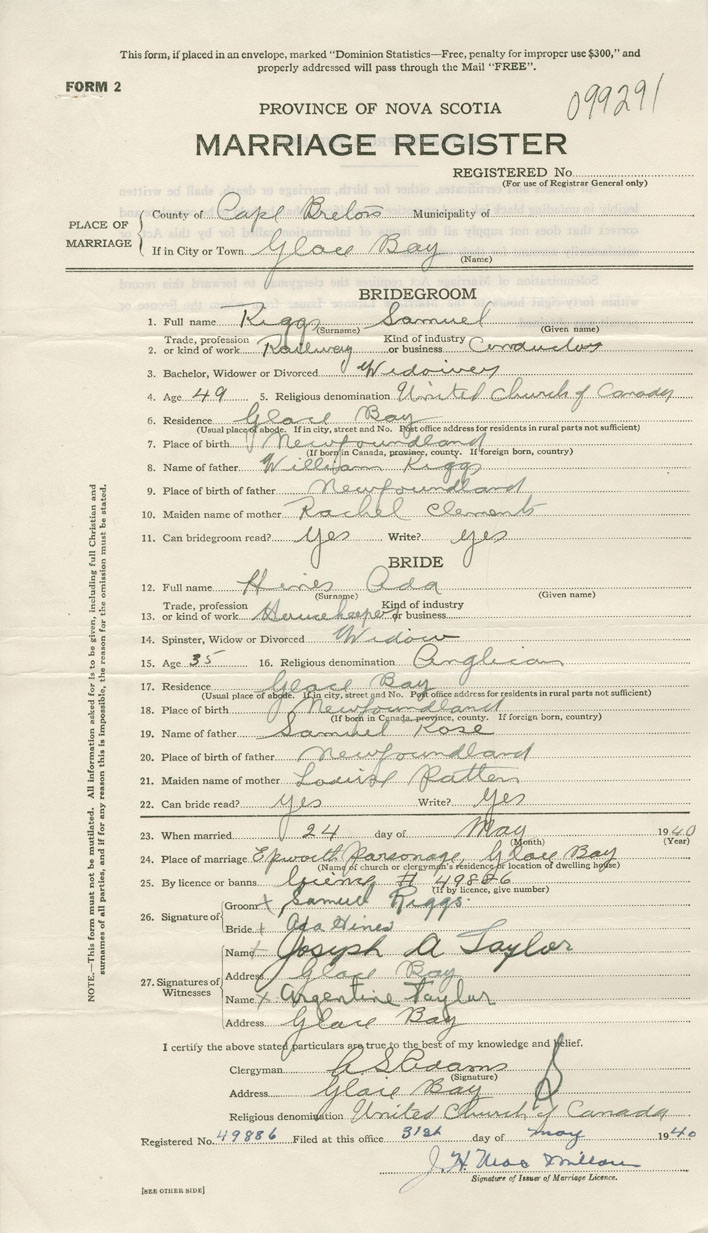 This form, if placed in an envelope, marked "Dominion Statistics—Free, penalty for improper use $300," and
properly addressed will pass through the Mail "FREE".
FORM 2
099291
PROVINCE OF NOVA SCOTIA
MARRIAGE REGISTER
REGISTERED No.
(For use of Registrar General only)
PLACE OF MARRIAGE
County of Cape Breton Municipality of
If in City or Town Glace Bay
(Name)
BRIDEGROOM
1. Full name Riggs Samuel
(Surname) (Given name)
2. Trade, profession or kind of work Railway Kind of industry or business Conductor
3. Bachelor, Widower or Divorced Widower
4. Age 49 5. Religious denomination United Church of Canada
6. Residence Glace Bay
(Usual place of abode. If in city, street and No. Post office address for residents in rural parts not sufficient)
7. Place of birth Newfoundland
(If born in Canada, province, county. If foreign born, country)
8. Name of father William Riggs
9. Place of birth of father Newfoundland
10. Maiden name of mother Rachel Clements
11. Can bridegroom read? Yes Write? yes
BRIDE
12. Full name Hines Ada
(Surname) (Given name)
13. Trade, profession or kind of work Housekeeper Kind of industry or business
14. Spinster, Widow or Divorced Widow
15. Age 35 16. Religious denomination Anglican
17. Residence Glace Bay
(Usual place of abode. If in city, street and No. Post office address for residents in rural parts not sufficient)
18. Place of birth Newfoundland
(If born in Canada, province, county. If foreign born, country)
19. Name of father Samuel Rose
20. Place of birth of father Newfoundland
21. Maiden name of mother Louise Patten
22. Can bride read? Yes Write? Yes
23. When married 24 day of May 1940
(Month) (Year)
24. Place of marriage Epworth Parsonage, Glace Bay
(Name of church or clergyman's residence or location of dwelling house)
25. By licence or banns License # 49886
(If by licence, give number)
26. Signature of
Groom x Samuel Riggs
Bride x Ada Hines
27. Signatures of Witnesses
Name x Joseph A Taylor
Address Glace Bay
Name x Argentine Taylor
Address Glace Bay
I certify the above stated particulars are true to the best of my knowledge and belief.
Clergyman A S Adams
(Signature)
Address Glace Bay
Religious denomination United Church of Canada
Registered No. 49886 Filed at this office 31st day of May 1940
J. H. MacMillan
Signature of Issuer of Marriage Licence.
[SEE OTHER SIDE]
NOTE.—This form must not be mutilated. All information asked for is to be given, including full Christian and
surnames of all parties, and if for any reason this is impossible, the reason for the omission must be stated.